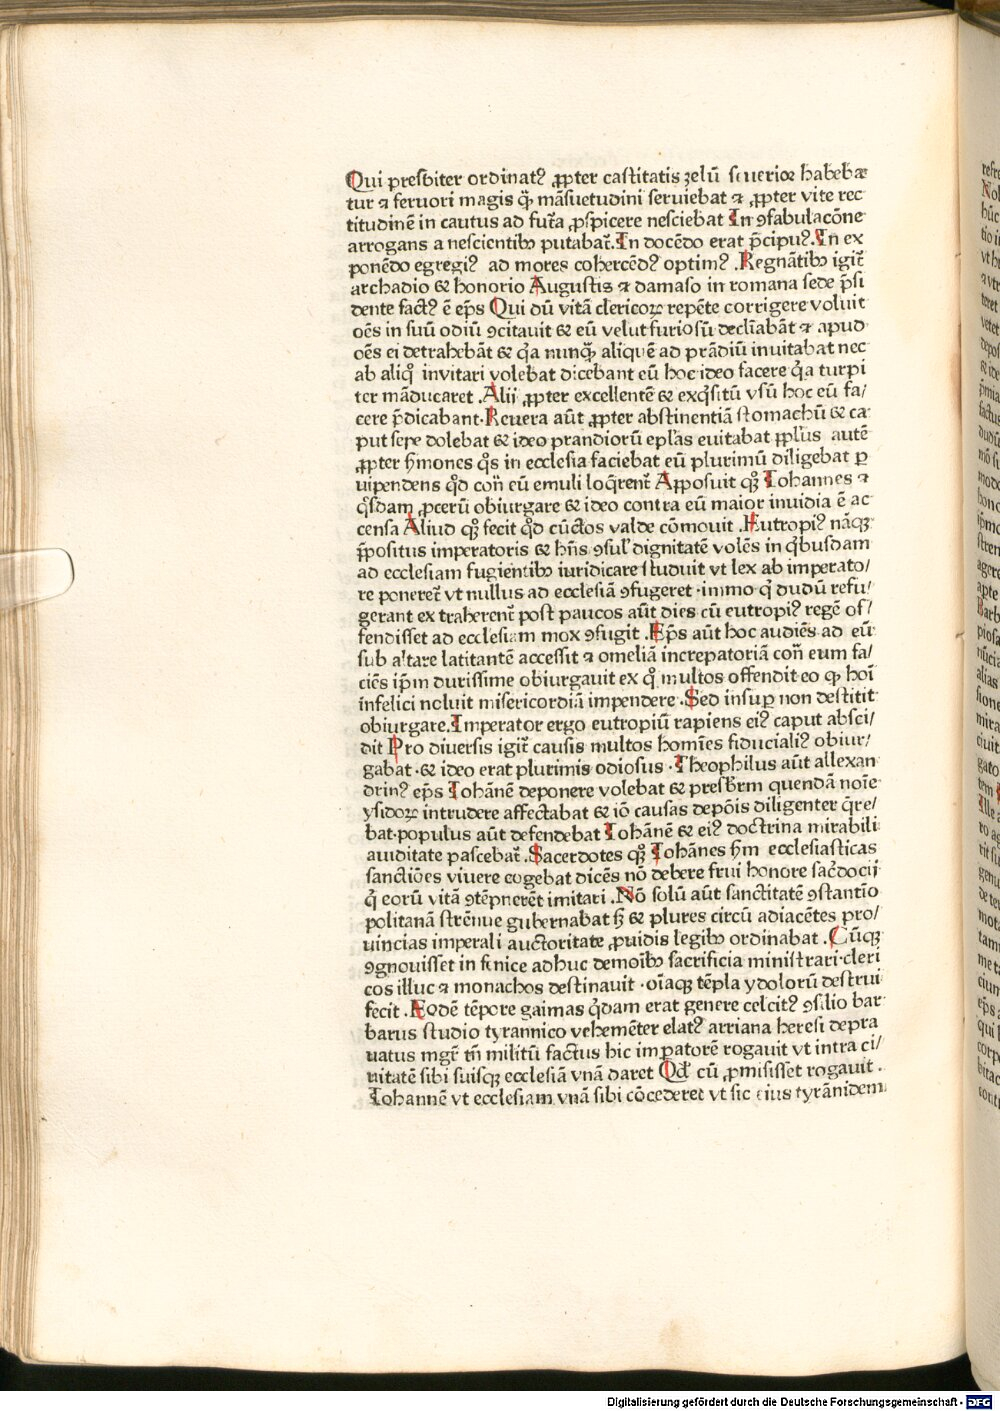 Qui presbiter ordinatꝰ ꝓpter castitatis zelũ seuerior habeba
tur ⁊ feruori magis qͫ mãsuetudini seruiebat ⁊ ꝓpter vite rec
titudinẽ in cautus ad fut̃a ꝓspicere nesciebat In ꝯfabulacõne
arrogans a nescientibꝫ putabat̃. In docẽdo erat p̃cipuꝰ. In ex
ponẽdo egregiꝰ ad mores cohercẽdꝰ optimꝰ. Regnãtibꝫ igit̃
archadio & honorio Augustis ⁊ damaso in romana sede p̃si
dente factꝰ ẽ ep̃s Qui dũ vitã clericoꝝ repẽte corrigere voluit
oẽs in suũ odiũ ꝯcitauit & eũ velut furiosũ declĩabãt ⁊ apud
oẽs ei detrahebãt & q̃a nunqͫ̃ aliquẽ ad prãdiũ inuitabat nec
ab aliq̃ invitari volebat dicebant eũ hoc ideo facere q̃a turpi
ter mãducaret. Alij ꝓpter excellentẽ & exq̃sitũ vsũ hoc eũ fa/
cere p̃dicabant. Reuera aũt ꝓpter abstinentiã stomachũ & ca
put sepe dolebat & ideo prandiorũ epl̃as euitabat pp̃lus autẽ
ꝓpter s̃mones q̃s in ecclesia faciebat eũ plurimũ diligebat ꝑ
uipendens q̃d con̄ eũ emuli loq̃rent̃ Apposuit qꝫ Iohannes ⁊
q̃sdam ꝓcerũ obiurgare & ideo contra eũ maior inuidia ẽ ac
censa Aliud qꝫ fecit q̃d cũctos valde cõmouit. Eutropiꝰ nãqꝫ
p̃positus imperatoris & hñs ꝯsul̃ dignitatẽ volẽs in q̃busdam
ad ecclesiam fugientibꝫ iuridicare studuit vt lex ab imperato/
re poneret̃ vt nullus ad ecclesiã ꝯfugeret · immo q̃ dudũ refu/
gerant ex traherent̃ post paucos aũt dies cũ eutropiꝰ regẽ of/
fendisset ad ecclesiam mox ꝯfugit. Ep̃s aũt hoc audiẽs ad eũ
sub altare latitantẽ accessit ⁊ omeliã increpatoriã con̄ eum fa/
ciẽs ip̃m durissime obiurgauit ex q̃ multos offendit eo qꝙ hoĩ
infelici noluit misericordiã impendere. Sed insuꝑ non destitit
obiurgare. Imperator ergo eutropiũ rapiens eiꝰ caput absci/
dit Pro diuersis igit̃ causis multos homĩes fiducialiꝰ obiur/
gabat · & ideo erat plurimis odiosus · Theophilus aũt allexan
drinꝰ ep̃s Iohãnẽ deponere volebat & presb̃rm quendã noĩe
ysidoꝝ intrudere affectabat & iõ causas depõis diligenter q̃re/
bat · populus aũt defendebat Iohãnẽ & eiꝰ doctrina mirabili
auiditate pascebat̃. Sacerdotes qꝫ Iohãnes s̃m ecclesiasticas
sanctiões viuere cogebat dicẽs nõ debere frui honore sac̃docij
q̃ eorũ vitã ꝯtẽpnerẽt imitari. Nõ solũ aũt sanctitatẽ ꝯstantĩo
politanã strẽnue gubernabat s̃ & plures circũ adiacẽtes pro/
uincias imperali auctoritate ꝓuidis legibꝫ ordinabat. Cũqꝫ
ꝯgnouisset in fenice adhuc demoĩbꝫ sacrificia ministrari · cleri
cos illuc ⁊ monachos destinauit · oĩaqꝫ tẽpla ydolorũ destrui
fecit. Eodẽ tẽpore gaimas q̃dam erat genere celcitꝰ ꝯsilio bar
barus studio tyrannico vehemẽter elatꝰ arriana heresi depra
uatus mgr̃ tñ militũ factus hic imꝑatorẽ rogauit vt intra ci/
uitatẽ sibi suisqꝫ ecclesiã vnã daret Qd̃ cũ ꝓmisisset rogauit ·
Iohannẽ vt ecclesiam vnã sibi cõcederet vt sic eius tyrãnidem
Digitalisierung gefördert durch die Deutsche Forschungsgemeinschaft - DFG